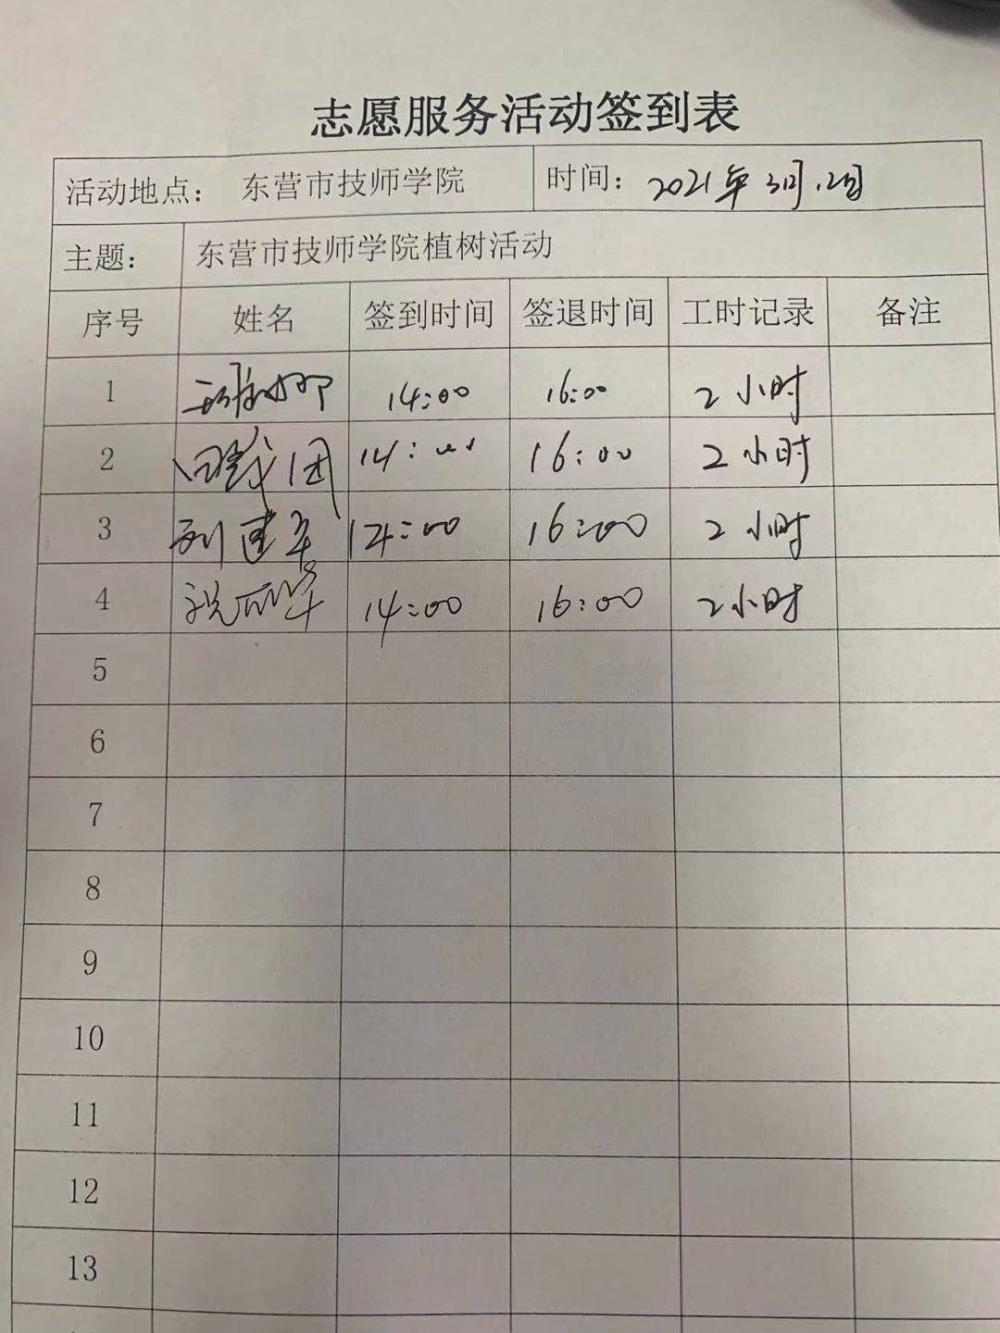 志愿服务活动签到表
活动地点： 东营市技师学院 时间： 2021年3月12日
主题： 东营市技师学院植树活动
序号 姓名 签到时间 签退时间 工时记录 备注
1 14:00 16:00 2小时
2 14:00 16:00 2小时
3 刘建军 14:00 16:00 2小时
4 14:00 16:00 2小时
5
6
7
8
9
10
11
12
13